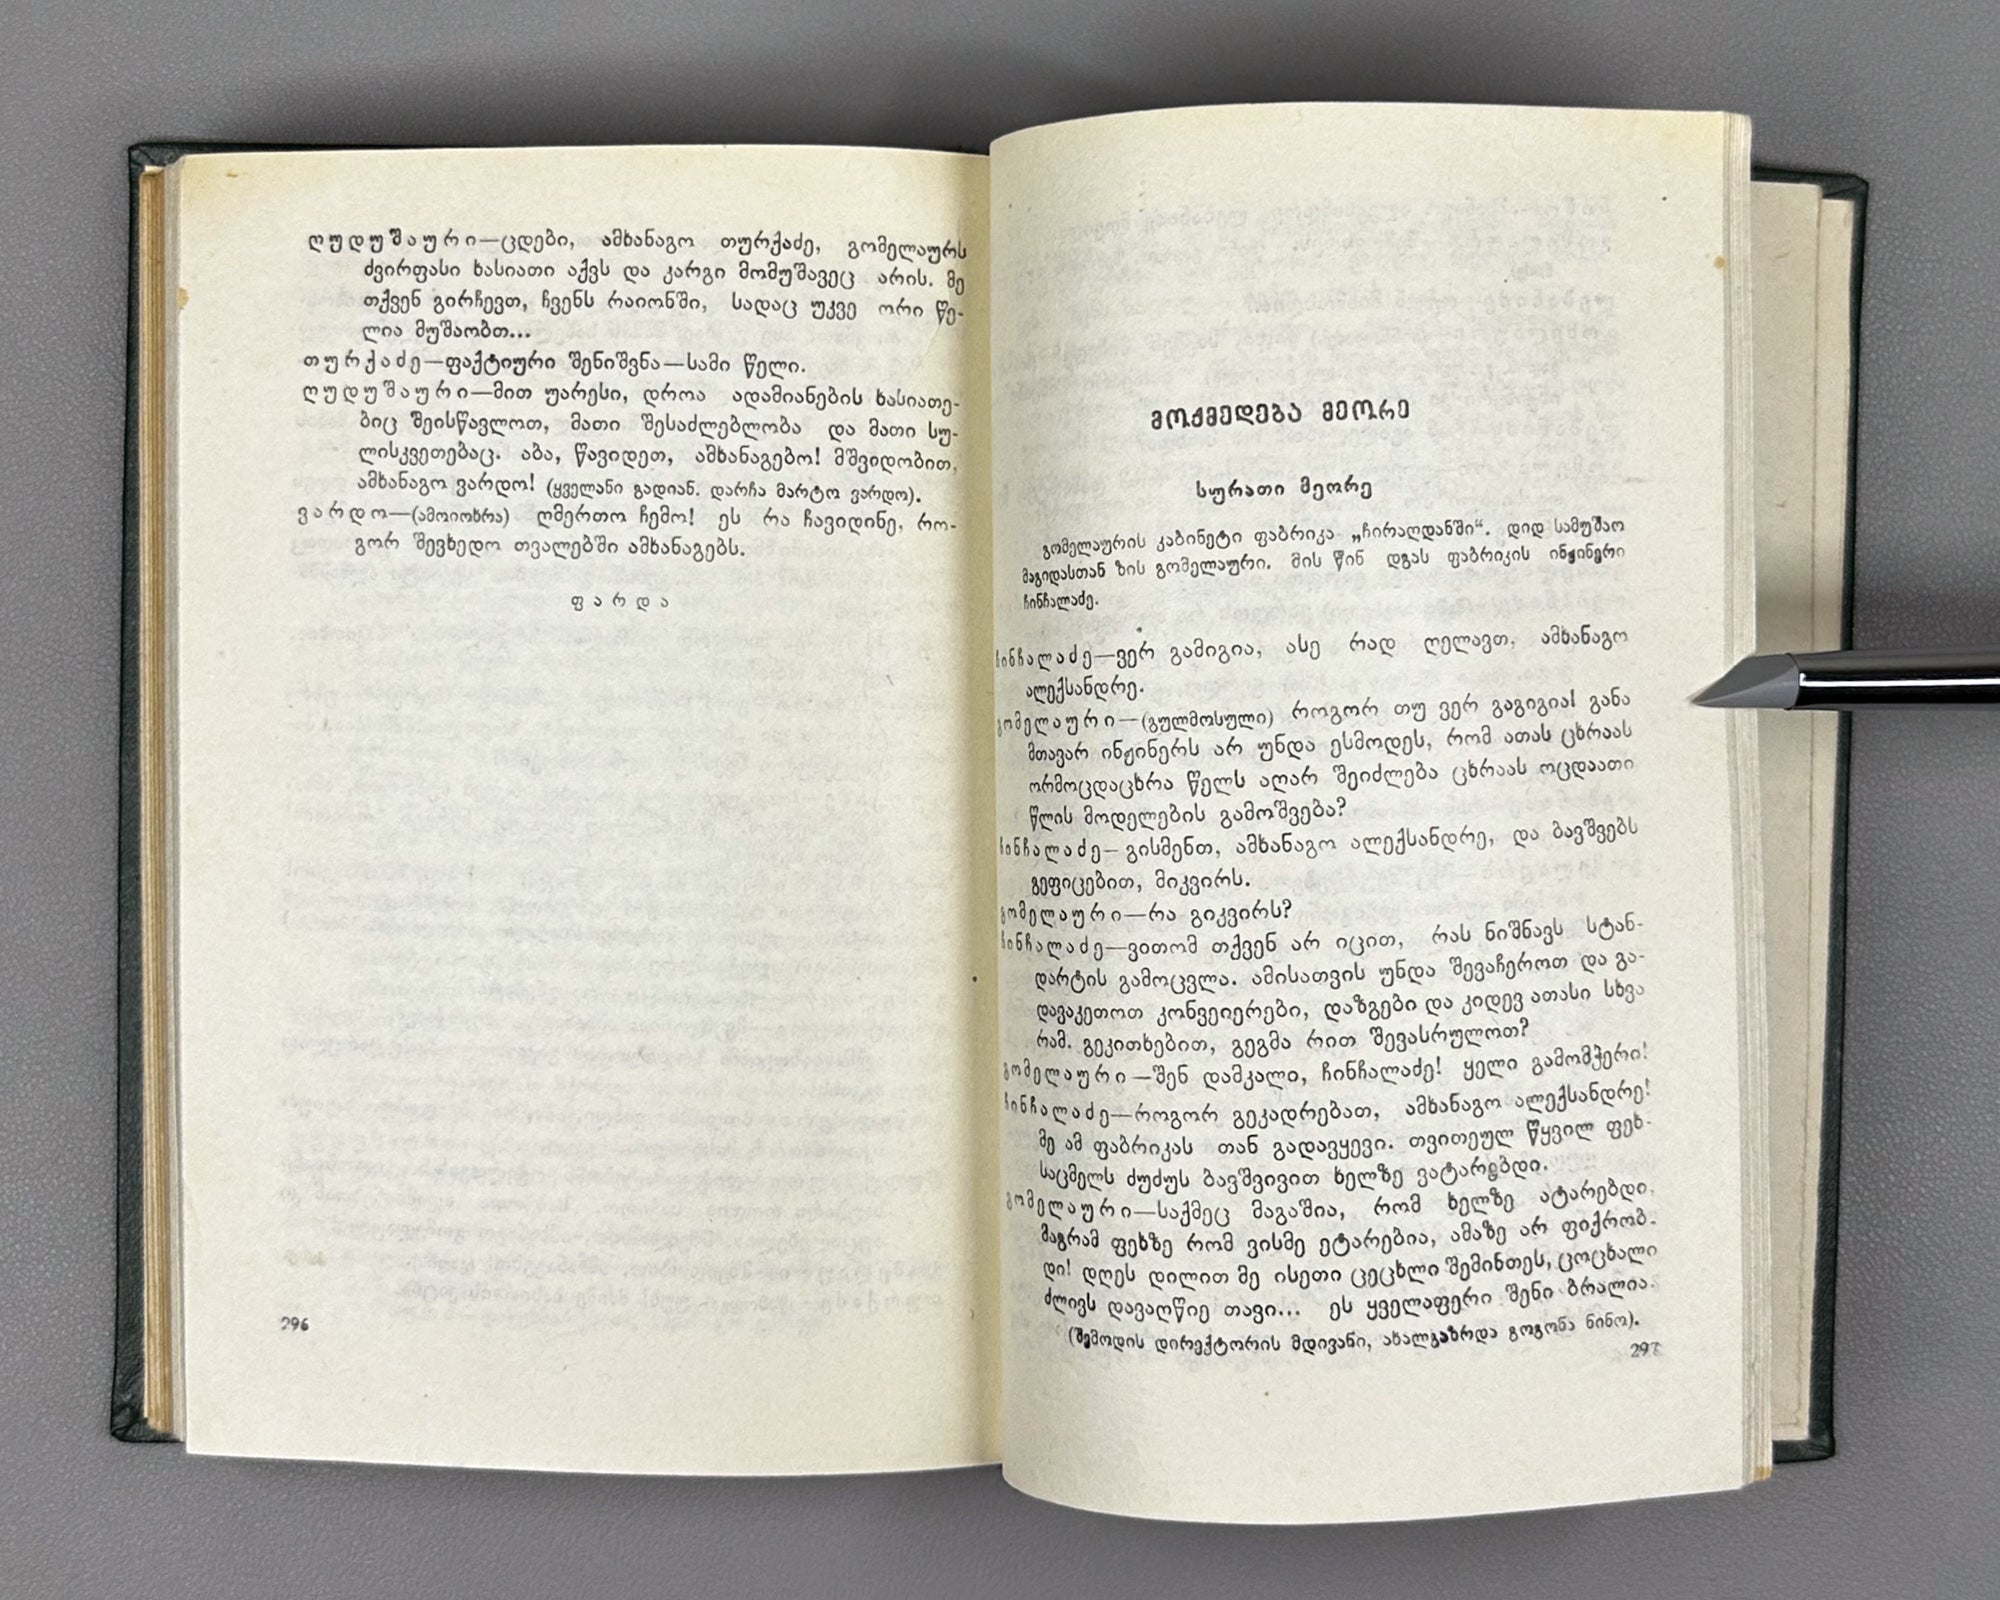 ღუდუშაური—ცდები, ამხანაგო თურქაძე, გომელაურს
ძვირფასი ხასიათი აქვს და კარგი მომუშავეც არის. მე
თქვენ გირჩევთ, ჩვენს რაიონში, სადაც უკვე ორი წე-
ლია მუშაობთ...
თურქაძე—ფაქტიური შენიშვნა—სამი წელი.
ღუდუშაური—მით უარესი, დროა ადამიანების ხასიათე-
ბიც შეისწავლოთ, მათი შესაძლებლობა და მათი სუ-
ლისკვეთებაც. აბა, წავიდეთ, ამხანაგებო! მშვიდობით,
ამხანაგო ვარდო! (ყველანი გადიან. დარჩა მარტო ვარდო).
ვარდო—(ამოიოხრა) ღმერთო ჩემო! ეს რა ჩავიდინე, რო-
გორ შევხედო თვალებში ამხანაგებს.
ფარდა
296
მოქმედება მეორე
სურათი მეორე
გომელაურის კაბინეტი ფაბრიკა „ჩირაღდანში“. დიდ სამუშაო
მაგიდასთან ზის გომელაური. მის წინ დგას ფაბრიკის ინჟინერი
ჩინჩალაძე.
ჩინჩალაძე—ვერ გამიგია, ასე რად ღელავთ, ამხანაგო
ალექსანდრე.
გომელაური—(გულმოსული) როგორ თუ ვერ გაგიგია! განა
მთავარ ინჟინერს არ უნდა ესმოდეს, რომ ათას ცხრაას
ორმოცდაცხრა წელს აღარ შეიძლება ცხრაას ოცდაათი
წლის მოდელების გამოშვება?
ჩინჩალაძე—გისმენთ, ამხანაგო ალექსანდრე, და ბავშვებს
გეფიცებით, მიკვირს.
გომელაური—რა გიკვირს?
ჩინჩალაძე—ვითომ თქვენ არ იცით, რას ნიშნავს სტან-
დარტის გამოცვლა. ამისათვის უნდა შევაჩეროთ და გა-
დავაკეთოთ კონვეიერები, დაზგები და კიდევ ათასი სხვა
რამ. გეკითხებით, გეგმა რით შევასრულოთ?
გომელაური—შენ დამკალი, ჩინჩალაძე! ყელი გამომჭერი!
ჩინჩალაძე—როგორ გეკადრებათ, ამხანაგო ალექსანდრე!
მე ამ ფაბრიკას თან გადავყევი. თვითეულ წყვილ ფეხ-
საცმელს ძუძუს ბავშვივით ხელზე ვატარებდი.
გომელაური—საქმეც მაგაშია, რომ ხელზე ატარებდი,
მაგრამ ფეხზე რომ ვისმე ეტარებია, ამაზე არ ფიქრობ-
დი! დღეს დილით მე ისეთი ცეცხლი შემინთეს, ცოცხალი
ძლივს დავაღწიე თავი... ეს ყველაფერი შენი ბრალია.
(შემოდის დირექტორის მდივანი, ახალგაზრდა გოგონა ნინო).
297